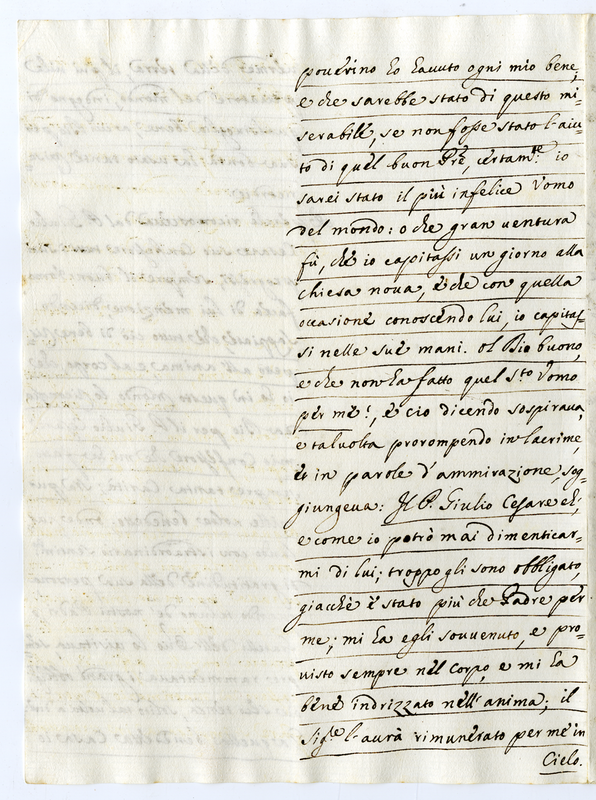 poverino ho havuto ogni mio bene,
e che sarebbe stato di questo mi-
serabile, se non fosse stato l'aiu-
to di quel buon Prē, certam.te io
sarei stato il più infelice Vomo
del mondo: o che gran ventura
fù, che io capitassi un giorno alla
chiesa nova, e che con quella
occasione conoscendo lui, io capitas-
si nelle sue mani. oh Dio buono,
e che non ha fatto quel S.to Vomo
per me!, e ciò dicendo sospirava,
e talvolta prorompendo in lacrime,
et in parole d'ammirazione, sog-
giungeva: Il P. Giulio Cesare eh,
e come io potrò mai dimenticar-
mi di lui; troppo gli sono obbligato,
giacchè è stato più che Padre per
me; mi ha egli sovvenuto, e pro-
visto sempre nel corpo, e mi ha
bene indrizzato nell'anima; il
Sig.re l'aurà rimunerato per me in
Cielo.